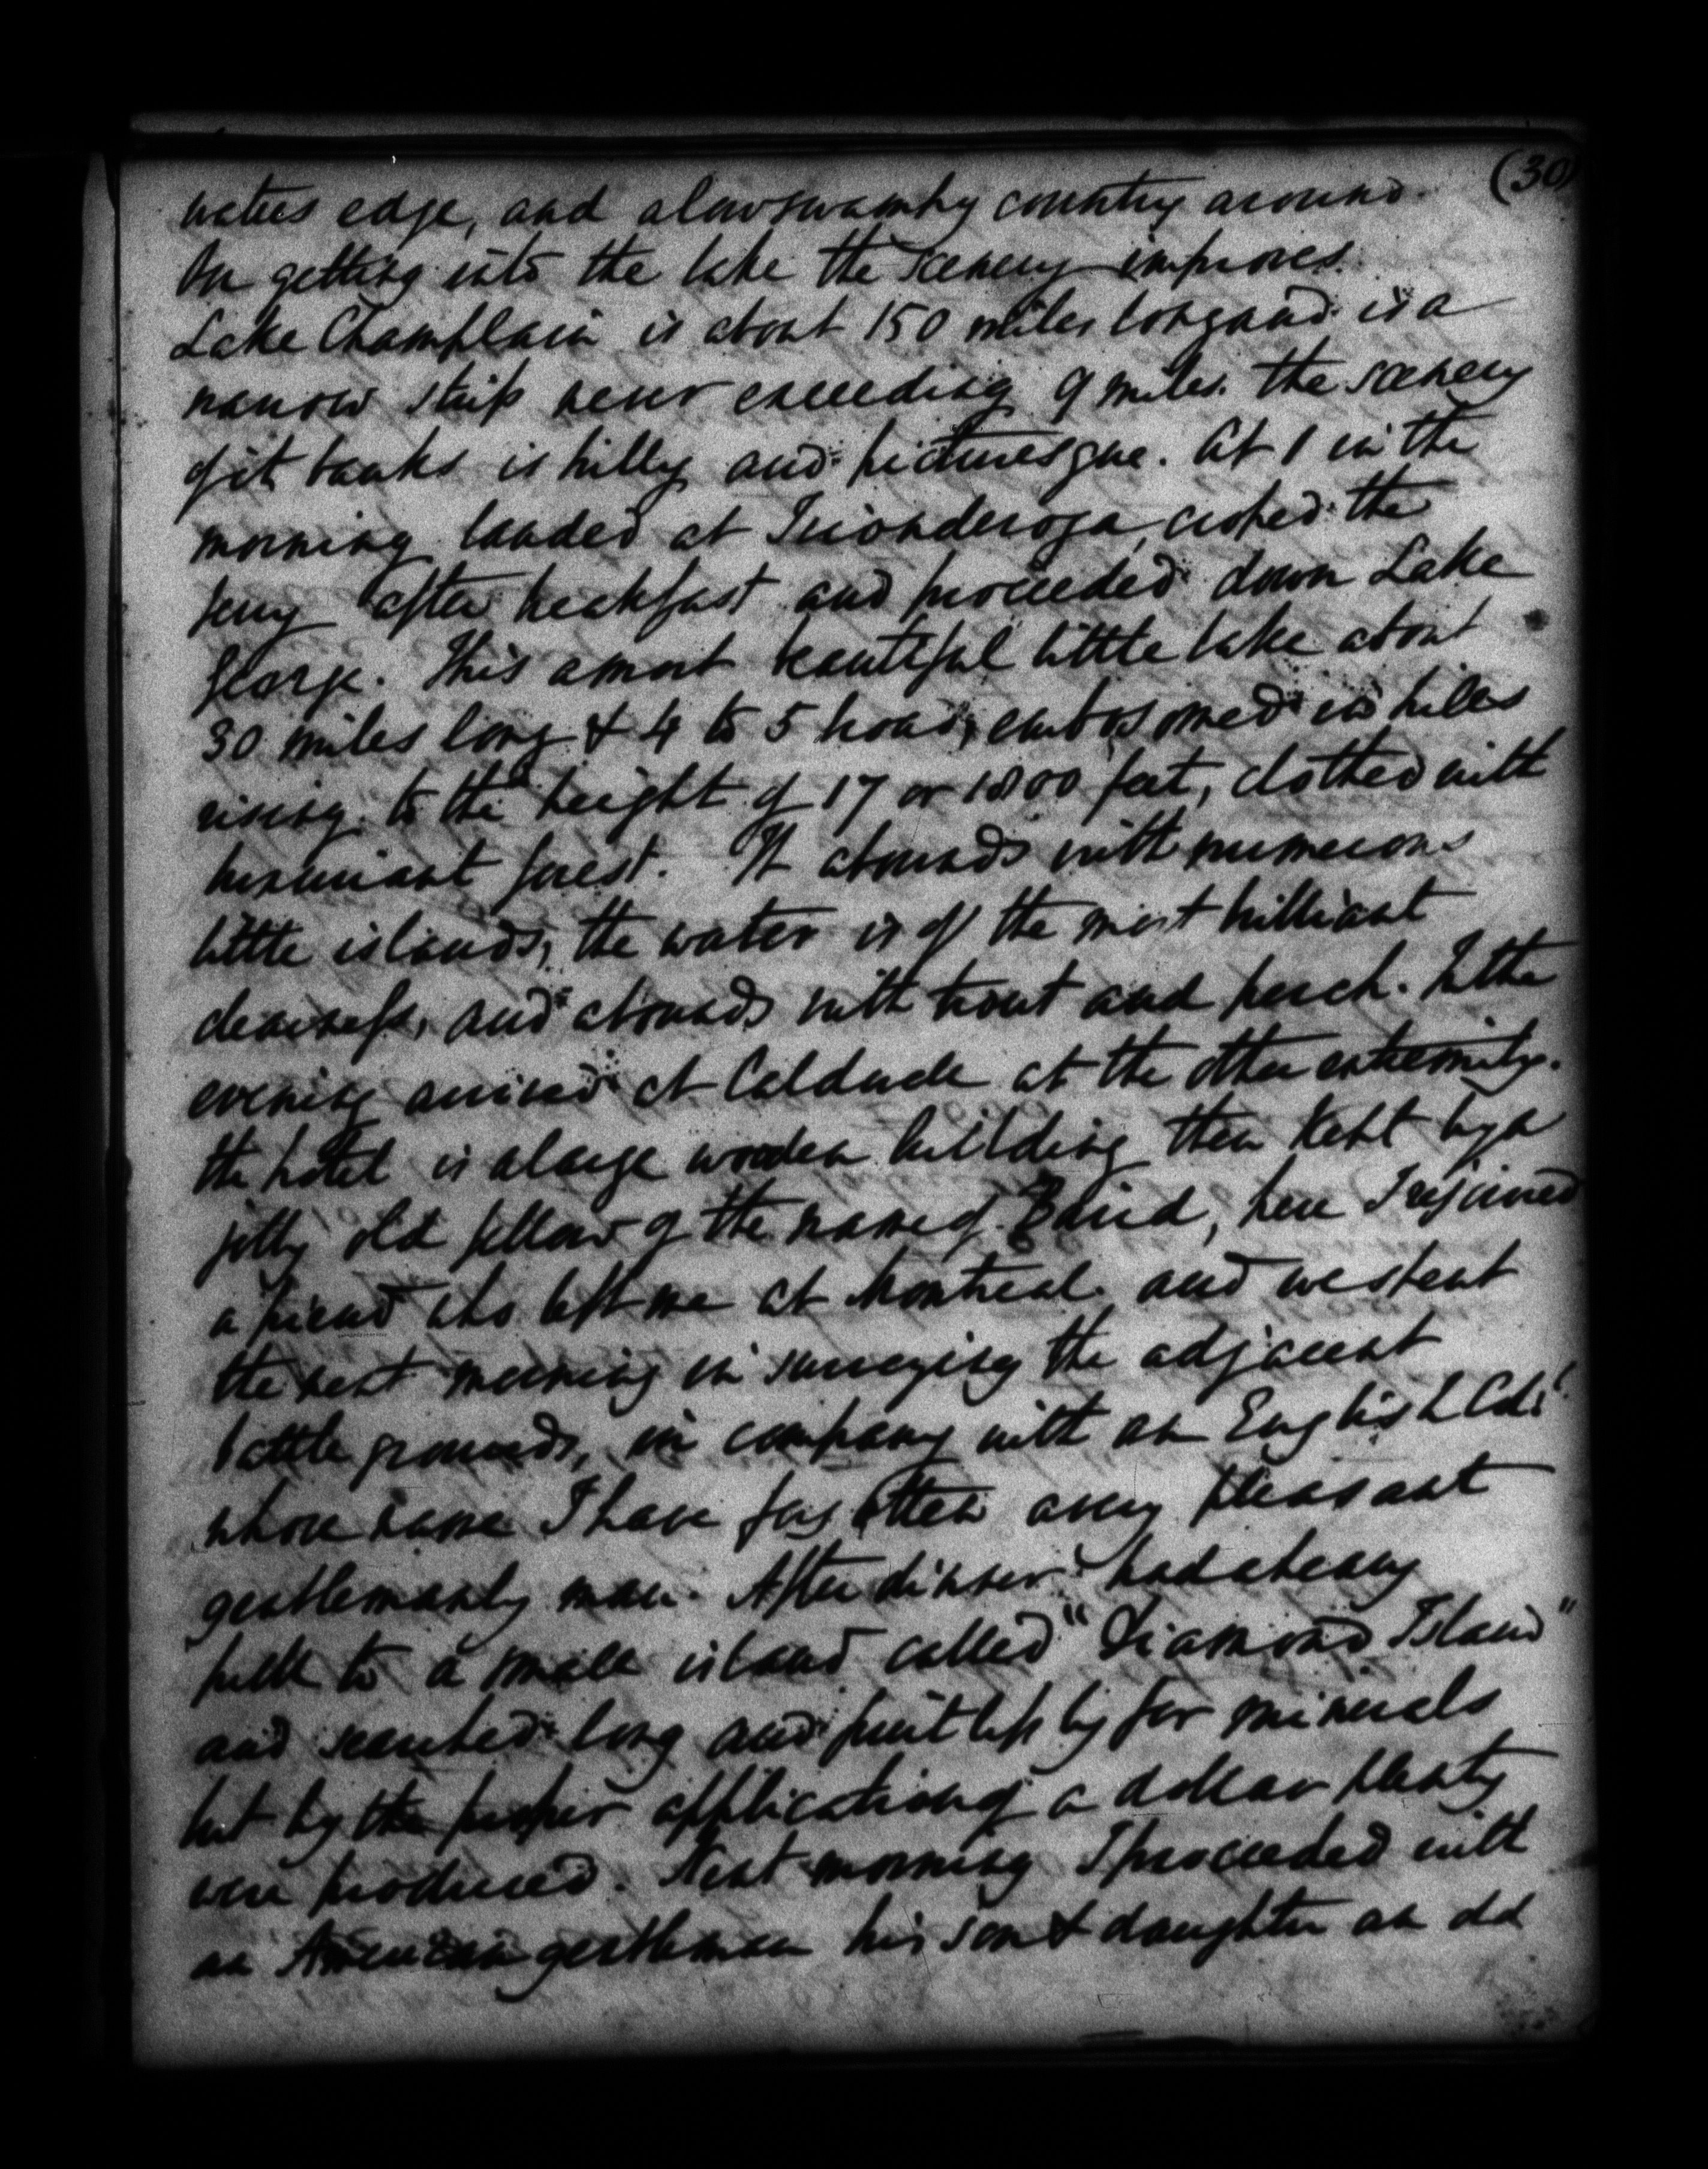 (30)
waters edge, and a low swampy country around.
On getting into the lake the scenery improves.
Lake Champlain is about 150 miles long and is a
narrow strip never exceeding 9 miles. the scenery
of it banks is hilly and picturesque. At 1 in the
morning landed at Ticonderoga, crossed the
ferry after breakfast and proceeded down Lake
George. This a most beautiful little lake about
30 miles long & 4 to 5 broad, embosomed in hills
rising to the height of 17 or 1800 feet, clothed with
luxuriant forest. It abounds with numerous
little islands, the water is of the most brilliant
clearness, and abounds with trout and perch. In the
evening arrived at Caldwell at the other extremity.
the hotel is a large wooden building then kept by a
jolly old fellow of the name of Baird, here I rejoined
a friend who left me at Montreal. and we spent
the next morning in surveying the adjacent
battle grounds, in company with an English
whose name I have forgotten a very pleasant
gentlemanly man. After dinner had a heavy
pull to a small island called "Diamond Island"
and searched long and fruitlessly for minerals
but by the proper application of a dollar plenty
were produced. Next morning I proceeded with
an American gentleman his son & daughter an old